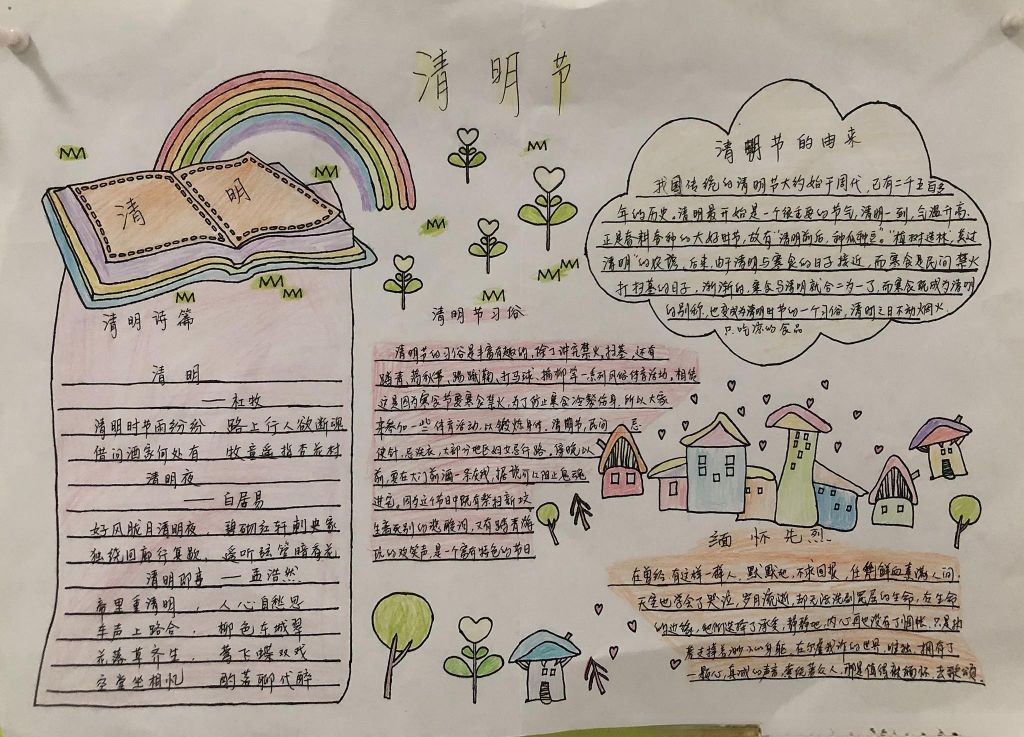 清明节
清 明
清明诗篇
清 明
——杜牧
清明时节雨纷纷 路上行人欲断魂
借问酒家何处有 牧童遥指杏花村
清明夜
——白居易
好风胧月清明夜， 碧砌红轩刺史家
独绕回廊行复歇 遥听弦管暗看花
清明即事 ——孟浩然
帝里重清明， 人心自愁思
车声上路合， 柳色东城翠
花落草齐生， 莺飞蝶双戏
空堂坐相忆 酌茗聊代醉
清明节习俗
清明节的习俗是丰富有趣的，除了讲究禁火、扫墓，还有
踏青、荡秋千、蹴鞠、打马球、插柳等一系列风俗体育活动。相传
这是因为寒食节要寒食禁火，为了防止寒食冷餐伤身，所以大家
来参加一些体育活动，以锻炼身体。清明节，民间 忌
使针，忌洗衣，大部分地区妇女忌行路。傍晚以
前，要在大门前洒一条灰线，据说可以阻止鬼魂
进宅。因为这个节日中既有祭扫新坟
生离死别的悲酸泪，又有踏青游
玩的欢笑声是一个富有特色的节日
清明节的由来
我国传统的清明节大约始于周代，已有二千五百多
年的历史。清明最开始是一个很重要的节气，清明一到，气温升高，
正是春耕春种的大好时节，故有“清明前后，种瓜种豆”。“植树造林，莫过
清明”的农谚。后来，由于清明与寒食的日子接近，而寒食是民间禁火
扫墓的日子，渐渐的，寒食与清明就合二为一了，而寒食既成为清明
的别称，也变成为清明时节的一个习俗，清明之日不动烟火，
只吃凉的食品
缅怀先烈
在曾经有这样一群人，默默地，不求回报，任凭鲜血素满人间。
天空也学会了哭泣，岁月流逝，却无法洗刷
的边缘，他们选择了承受，静静地，内心再也没有了惆怅，只是
在 的世界，唯独拥有了
一颗心，真诚的声音， 着众人，那是值得被缅怀、去歌颂